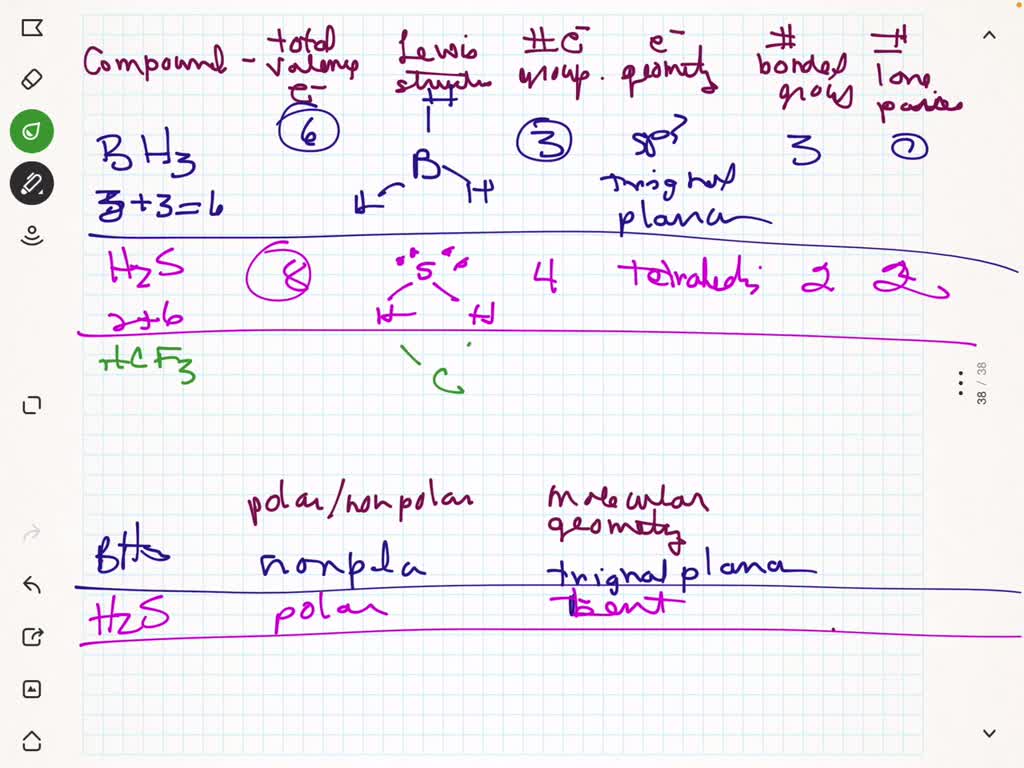 Compound - total valence e⁻ Lewis structure # e⁻ group. e⁻ geometry # bonded groups # lone pairs
BH3 6 H 3 sp² 3 0
B
H H trignal
3+3=6 plana
H2S 8 S 4 tetrahedr 2 2
2+6 H H
HCF3 C
38 / 38
polar/nonpolar molecular geometry
BH3 nonpola trignal plana
H2S polar bent